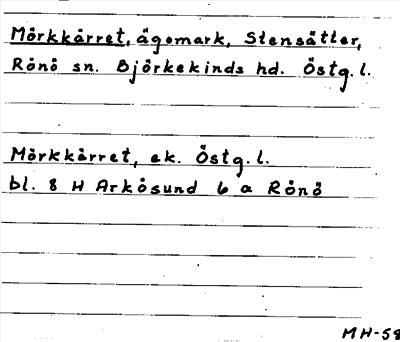 Mörkkärret, ägomark, Stensätter,
Rönö sn. Björkekinds hd. Östg. l.
Mörkkärret, ek. Östg. l.
bl. 8 H Arkösund 6 a Rönö
MH-58